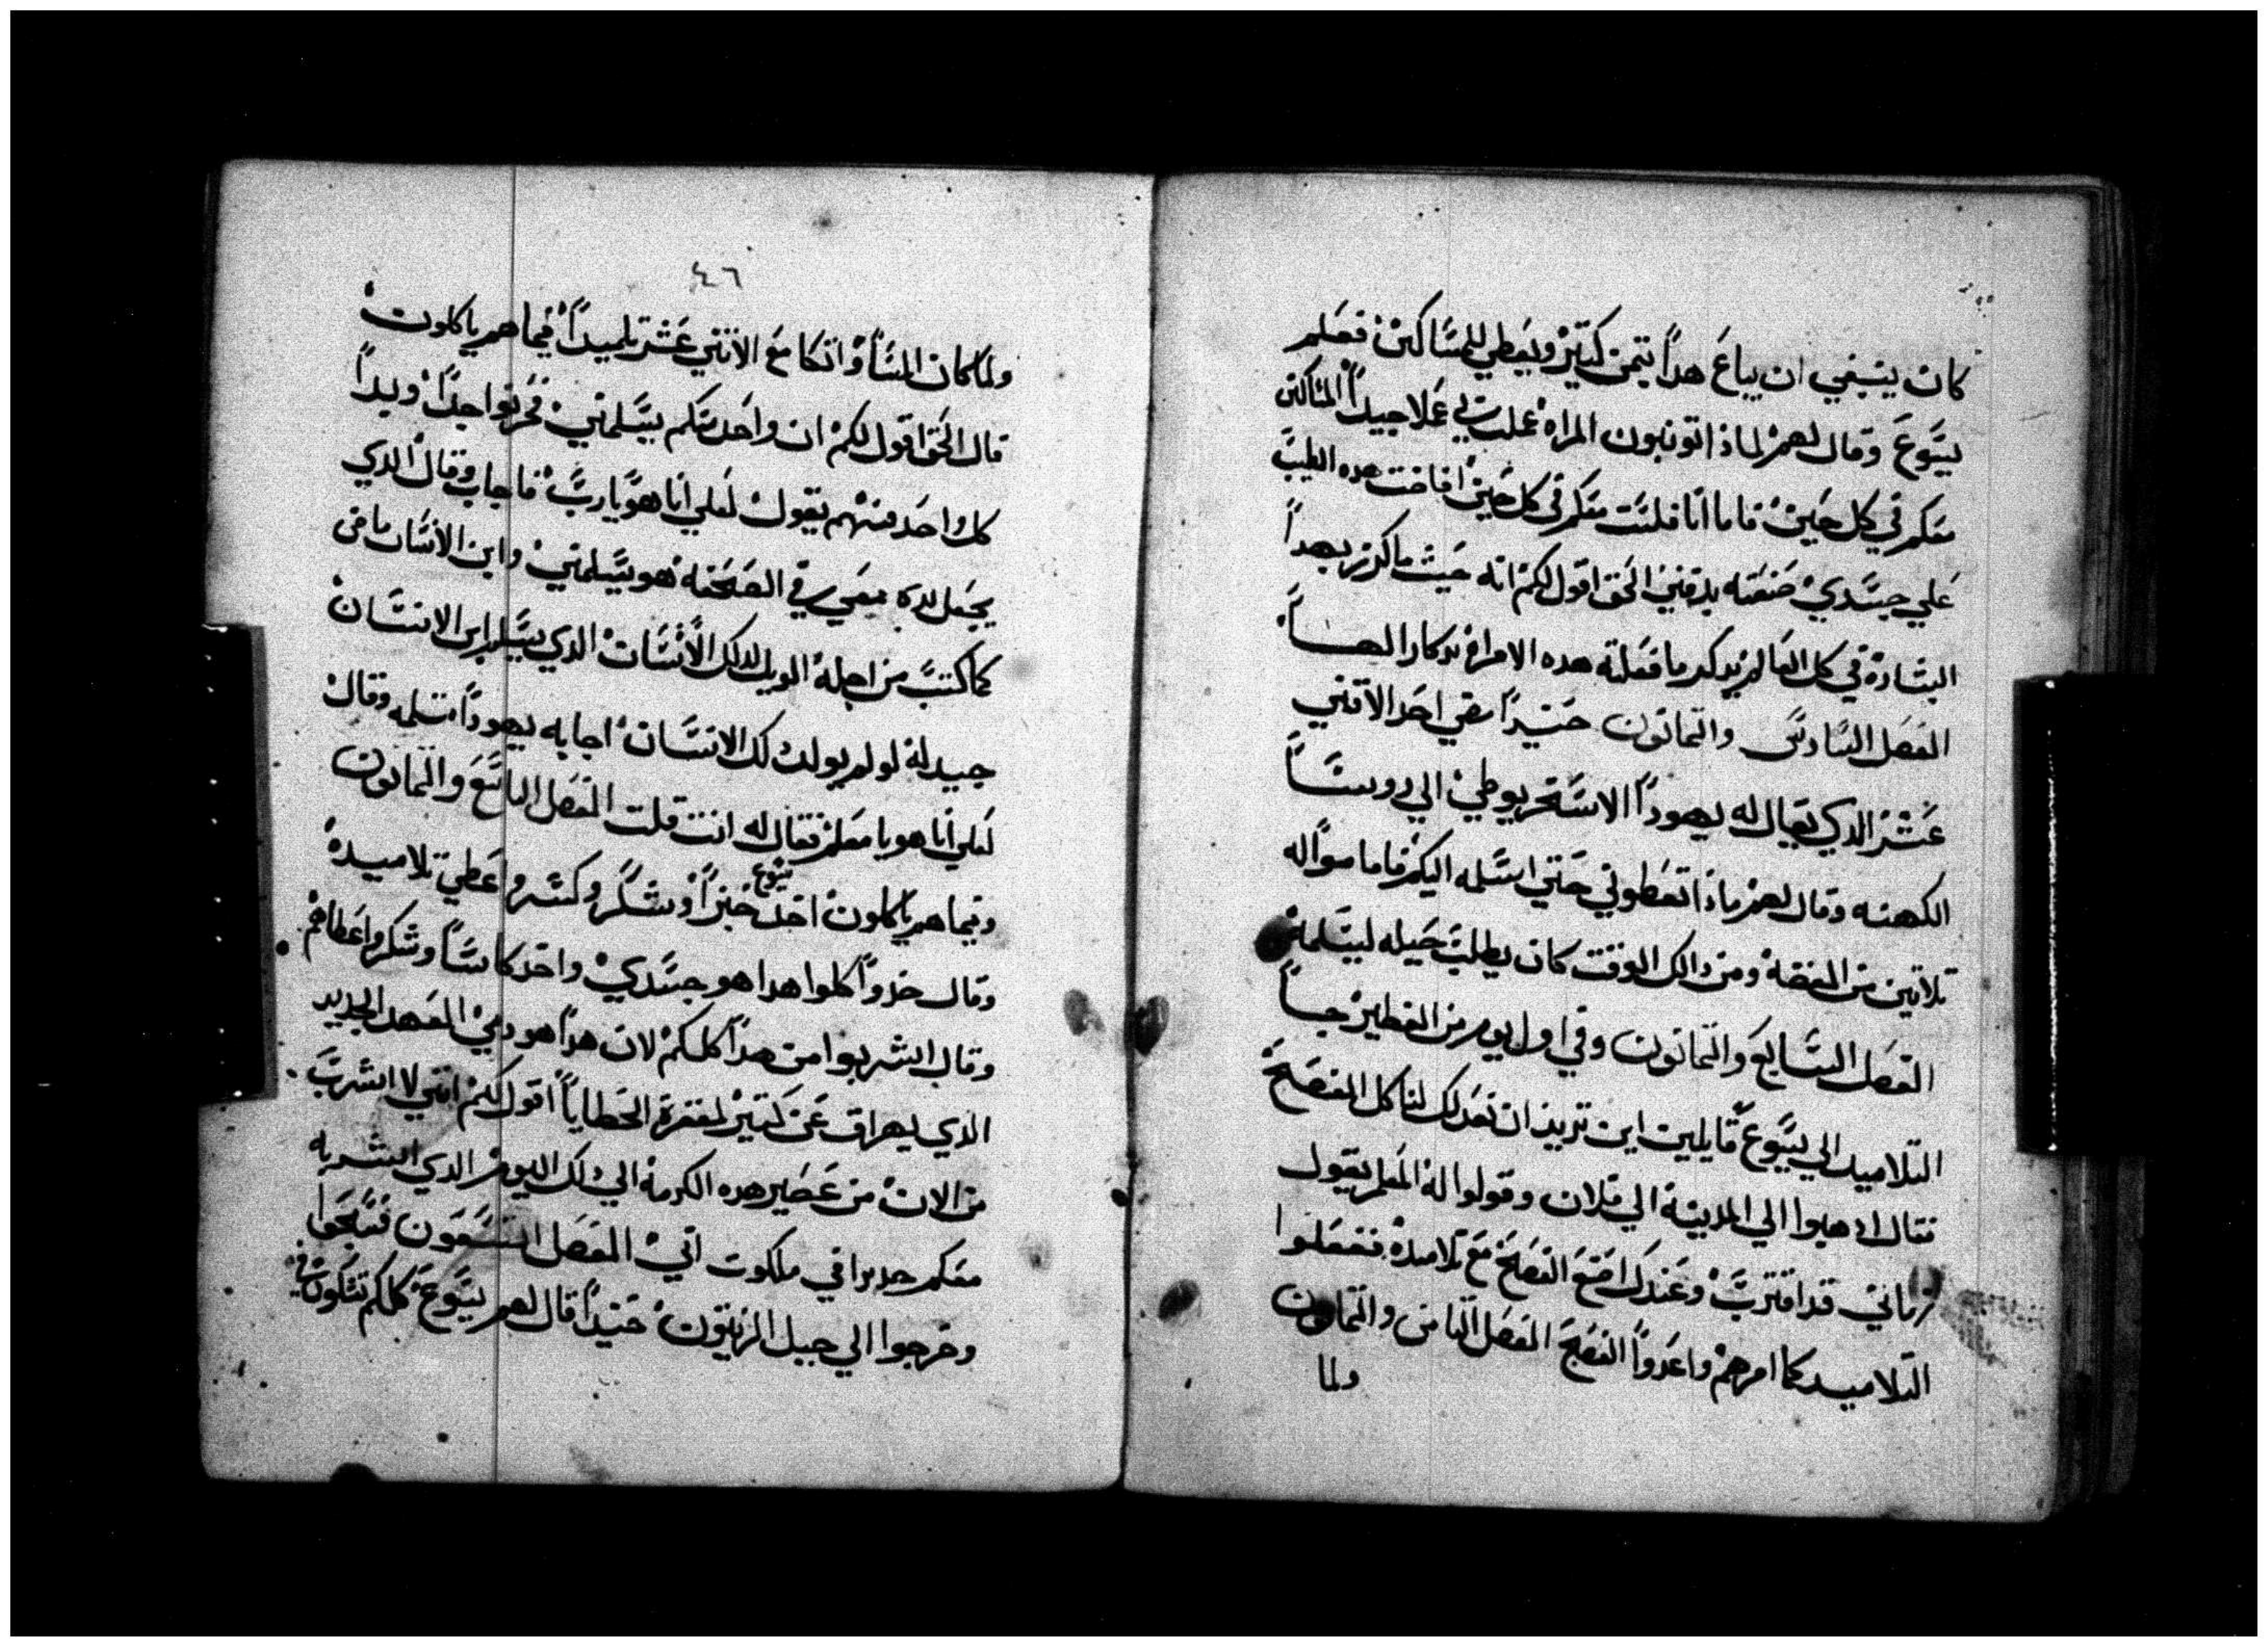 كان ينبغي ان يباع هداً بتمن كتير ويعطي للمساكين فعلم
يسوع وقال لهم لماذا تونبون المراه عملت بي عملا جيداً المساكين
معكم في كل حين فاما انا فلست معكم في كل حين افاضت هده الطيب
علي جسدي صنعته يدفني الحق اقول لكم انه حيث ما كرز بهداً
البشاره في كل العالم يدكر ما فعلته هده الامراه تدكارا لهساً
الفصل السادس والتمانون حنيداً مضي احد الاتني
عشر الدي يقال له يهوداً الاسخريوطي الي روسساً
الكهنه وقال لهم ماذا تعطوني حتي اسلمه اليكم فاما موا له
تلاتين من الفضه ومن دالك الوقت كان يطلب حيله ليسلمه
الفصل السابع والتمانون وفي اول يوم من الفطير جساً
التلاميد الي يسوع قايلين اين تريد ان نعد لك لناكل الفصح
فقال ادهبوا الي المدينه الي فلان وقولوا له المعلم يقول
زماني قد اقترب وعندك اصنع الفصح مع تلاميده ففعلوا
التلاميد كما امرهم واعدواً الفصح الفصل التامن والتمانون
ولما
٤٦
ولما كان المساً واتكا مع الاتني عشر تلميداً فيما هم ياكلون
قال الحق اقول لكم ان واحد منكم يسلمني فحزنوا جداً وبداً
كل واحد منهم يقول لعلي انا هو يا رب فاجاب وقال الدي
يجعل يده معي في الصحفه هو يسلمني وابن الانسان ماضي
كما كتب من اجله الويل لدلك الانسان الدي يسلم ابن الانسان
جيد له لو لم يولد لك الانسان اجابه يهوداً مسلمه وقال
لعلي انا هو يا معلم فقال له انت قلت الفصل التاسع والتمانون
وفيما هم ياكلون اخد يسوع خبزاً وشكر وكسر واعطي تلاميده
وقال خدواً كلوا هدا هو جسدي واخد كاساً وشكر واعطاهم
وقال اشربوا من هداً كلكم لان هداً هو دمي العهد الجديد
الدي يهراق عن كتير لمغفرة الخطاياً اقول لكم انني لا اشرب
من الان من عصير هده الكرمه الي دلك اليوم الدي اشربه
معكم جديدا في ملكوت ابي الفصل التسعون فسبحوا
وخرجوا الي جبل الزيتون حنيداً قال لهم يسوع كلكم تشكون في